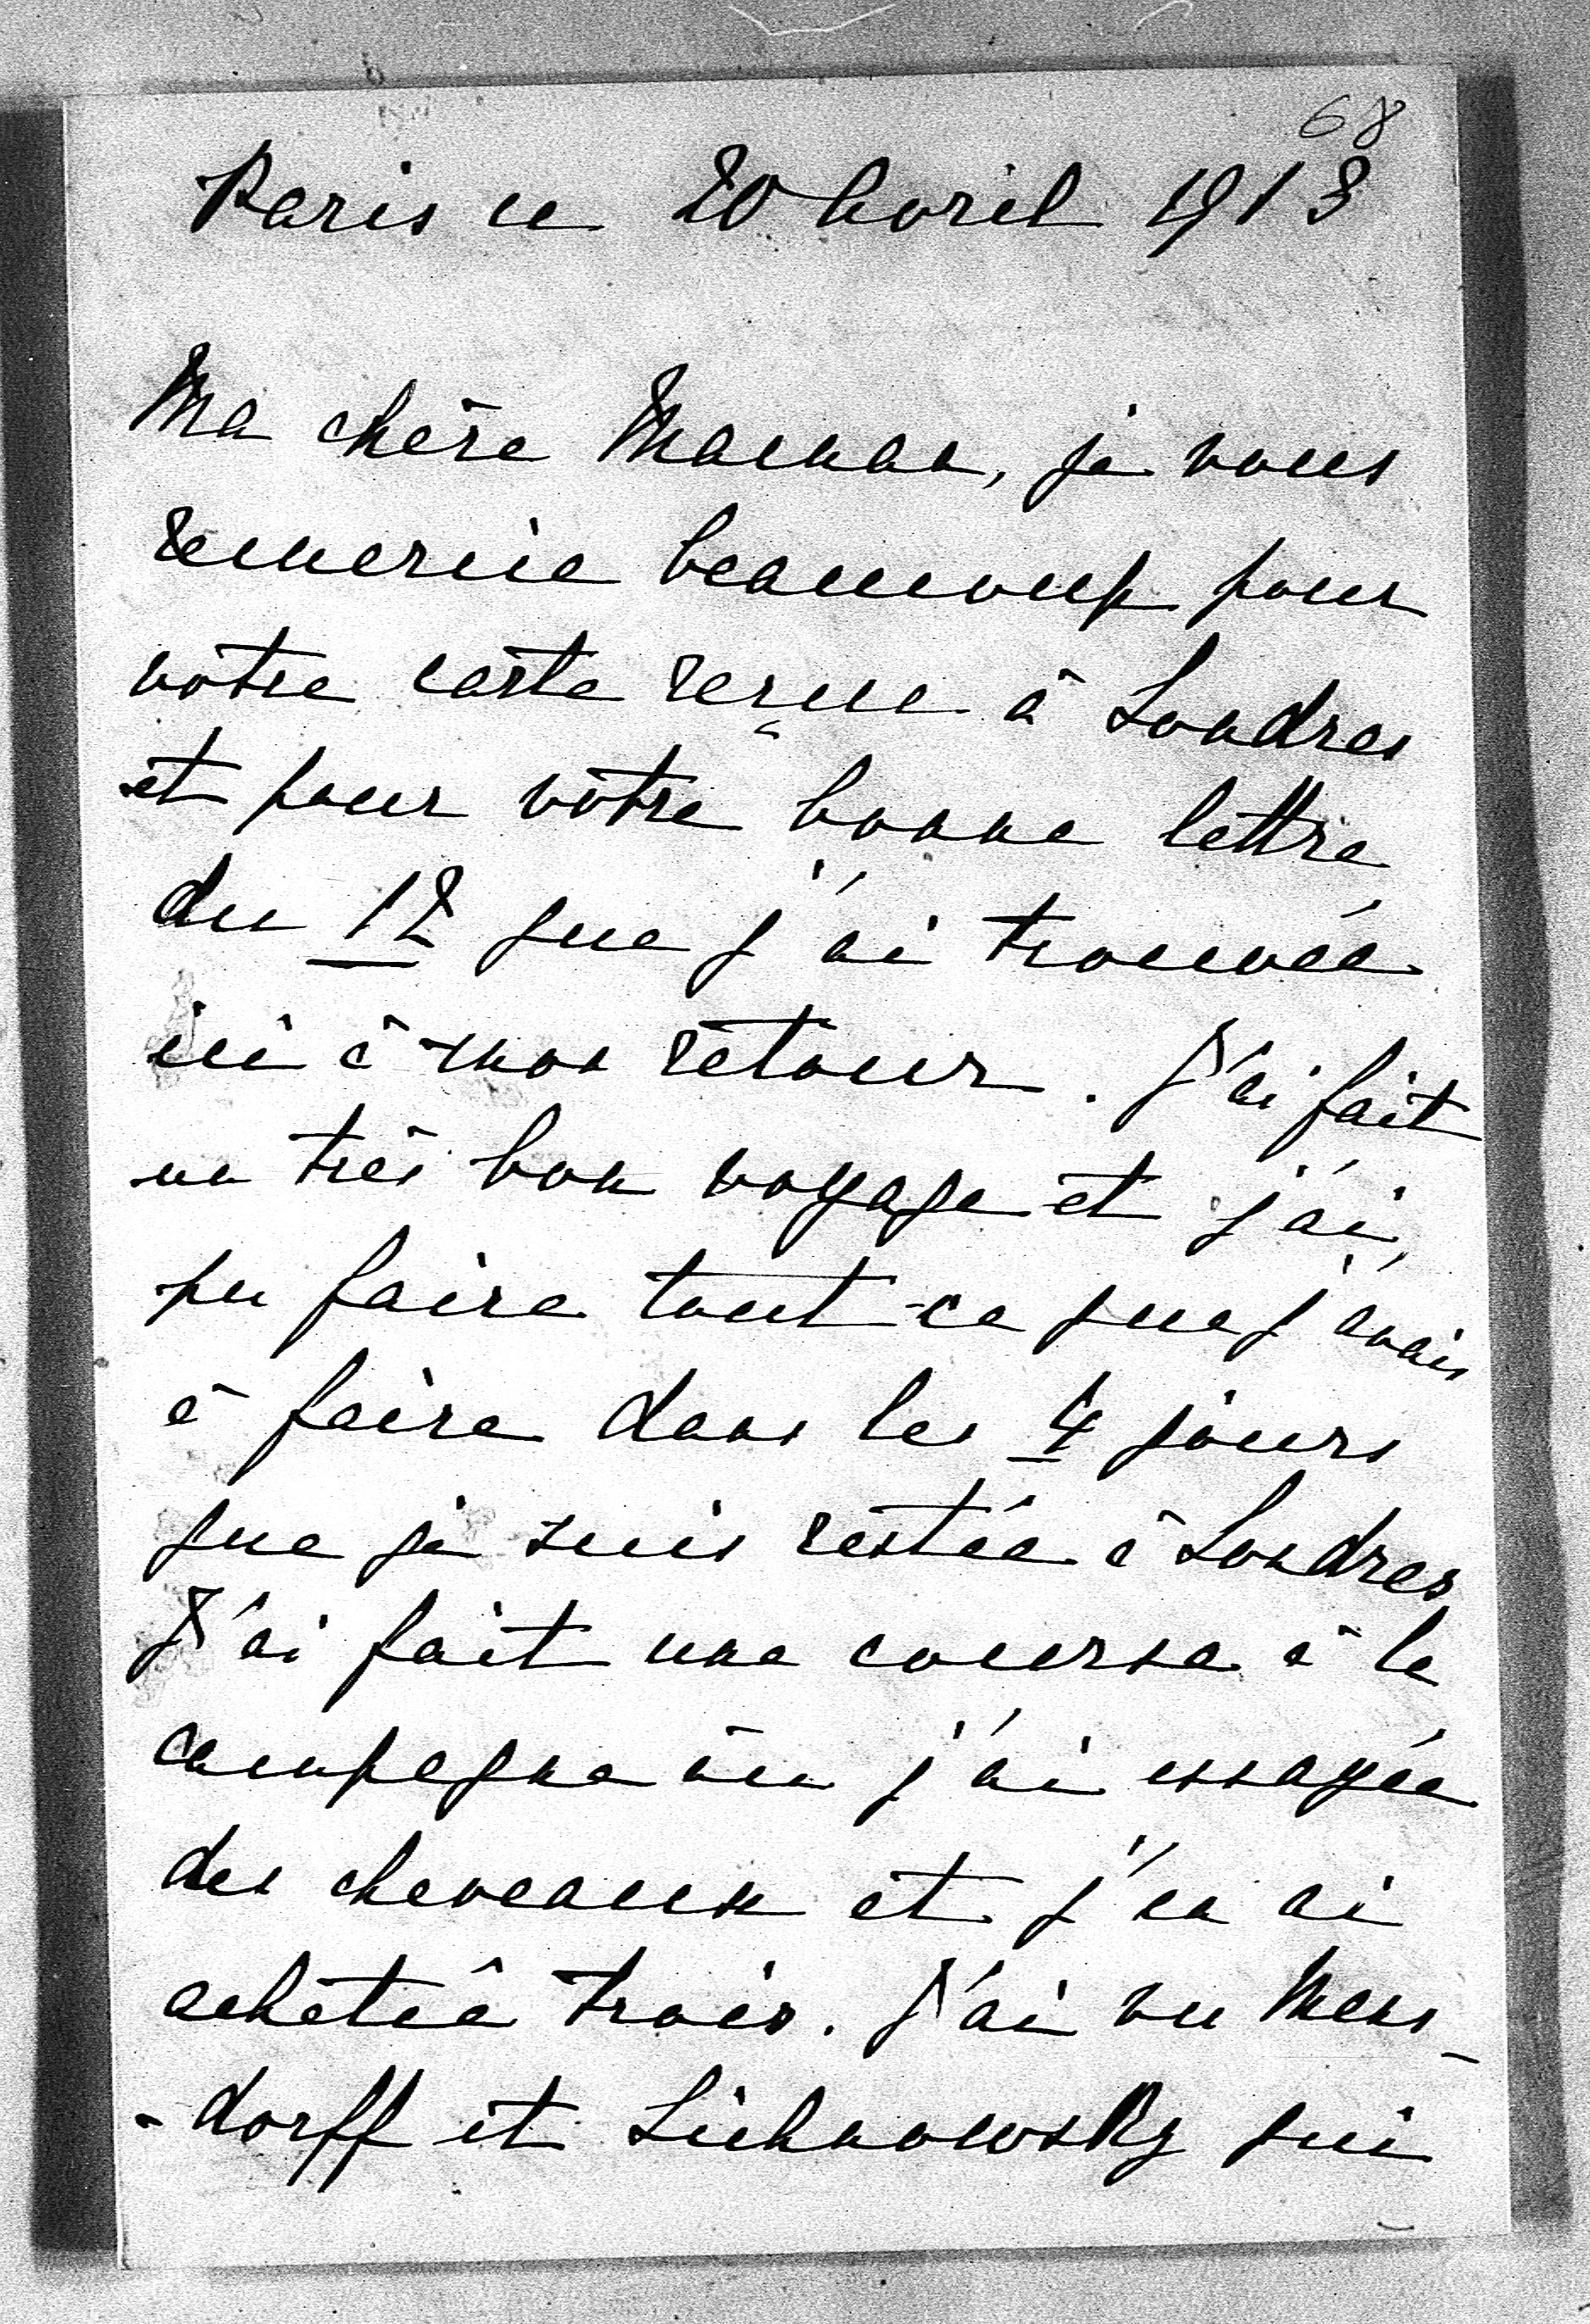 68
Paris ce 20 Avril 1913
Ma chère Maman, je vous
remercie beaucoup pour
votre carte reçue à Londres
et pour votre bonne lettre
du 12 que j'ai trouvée
ici à mon retour. J'ai fait
un très bon voyage et j'ai
pu faire tout ce que j'avais
à faire dans les 4 jours
que je suis restée à Londres
J'ai fait une course à la
campagne où j'ai essayée
des cheveaux et j'en ai
acheteé trois. J'ai vu Mens-
-dorff et Lichnowsky qui